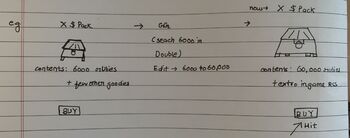 now → X $ Pack
eg X $ Pack → GG →
(seach 6000 in
Double)
Edit → 6000 to 60,000
contents: 6000 rubies
+ few other goodies
contents: 60,000 rubies
+ extra in game RS
BUY
BUY
Hit